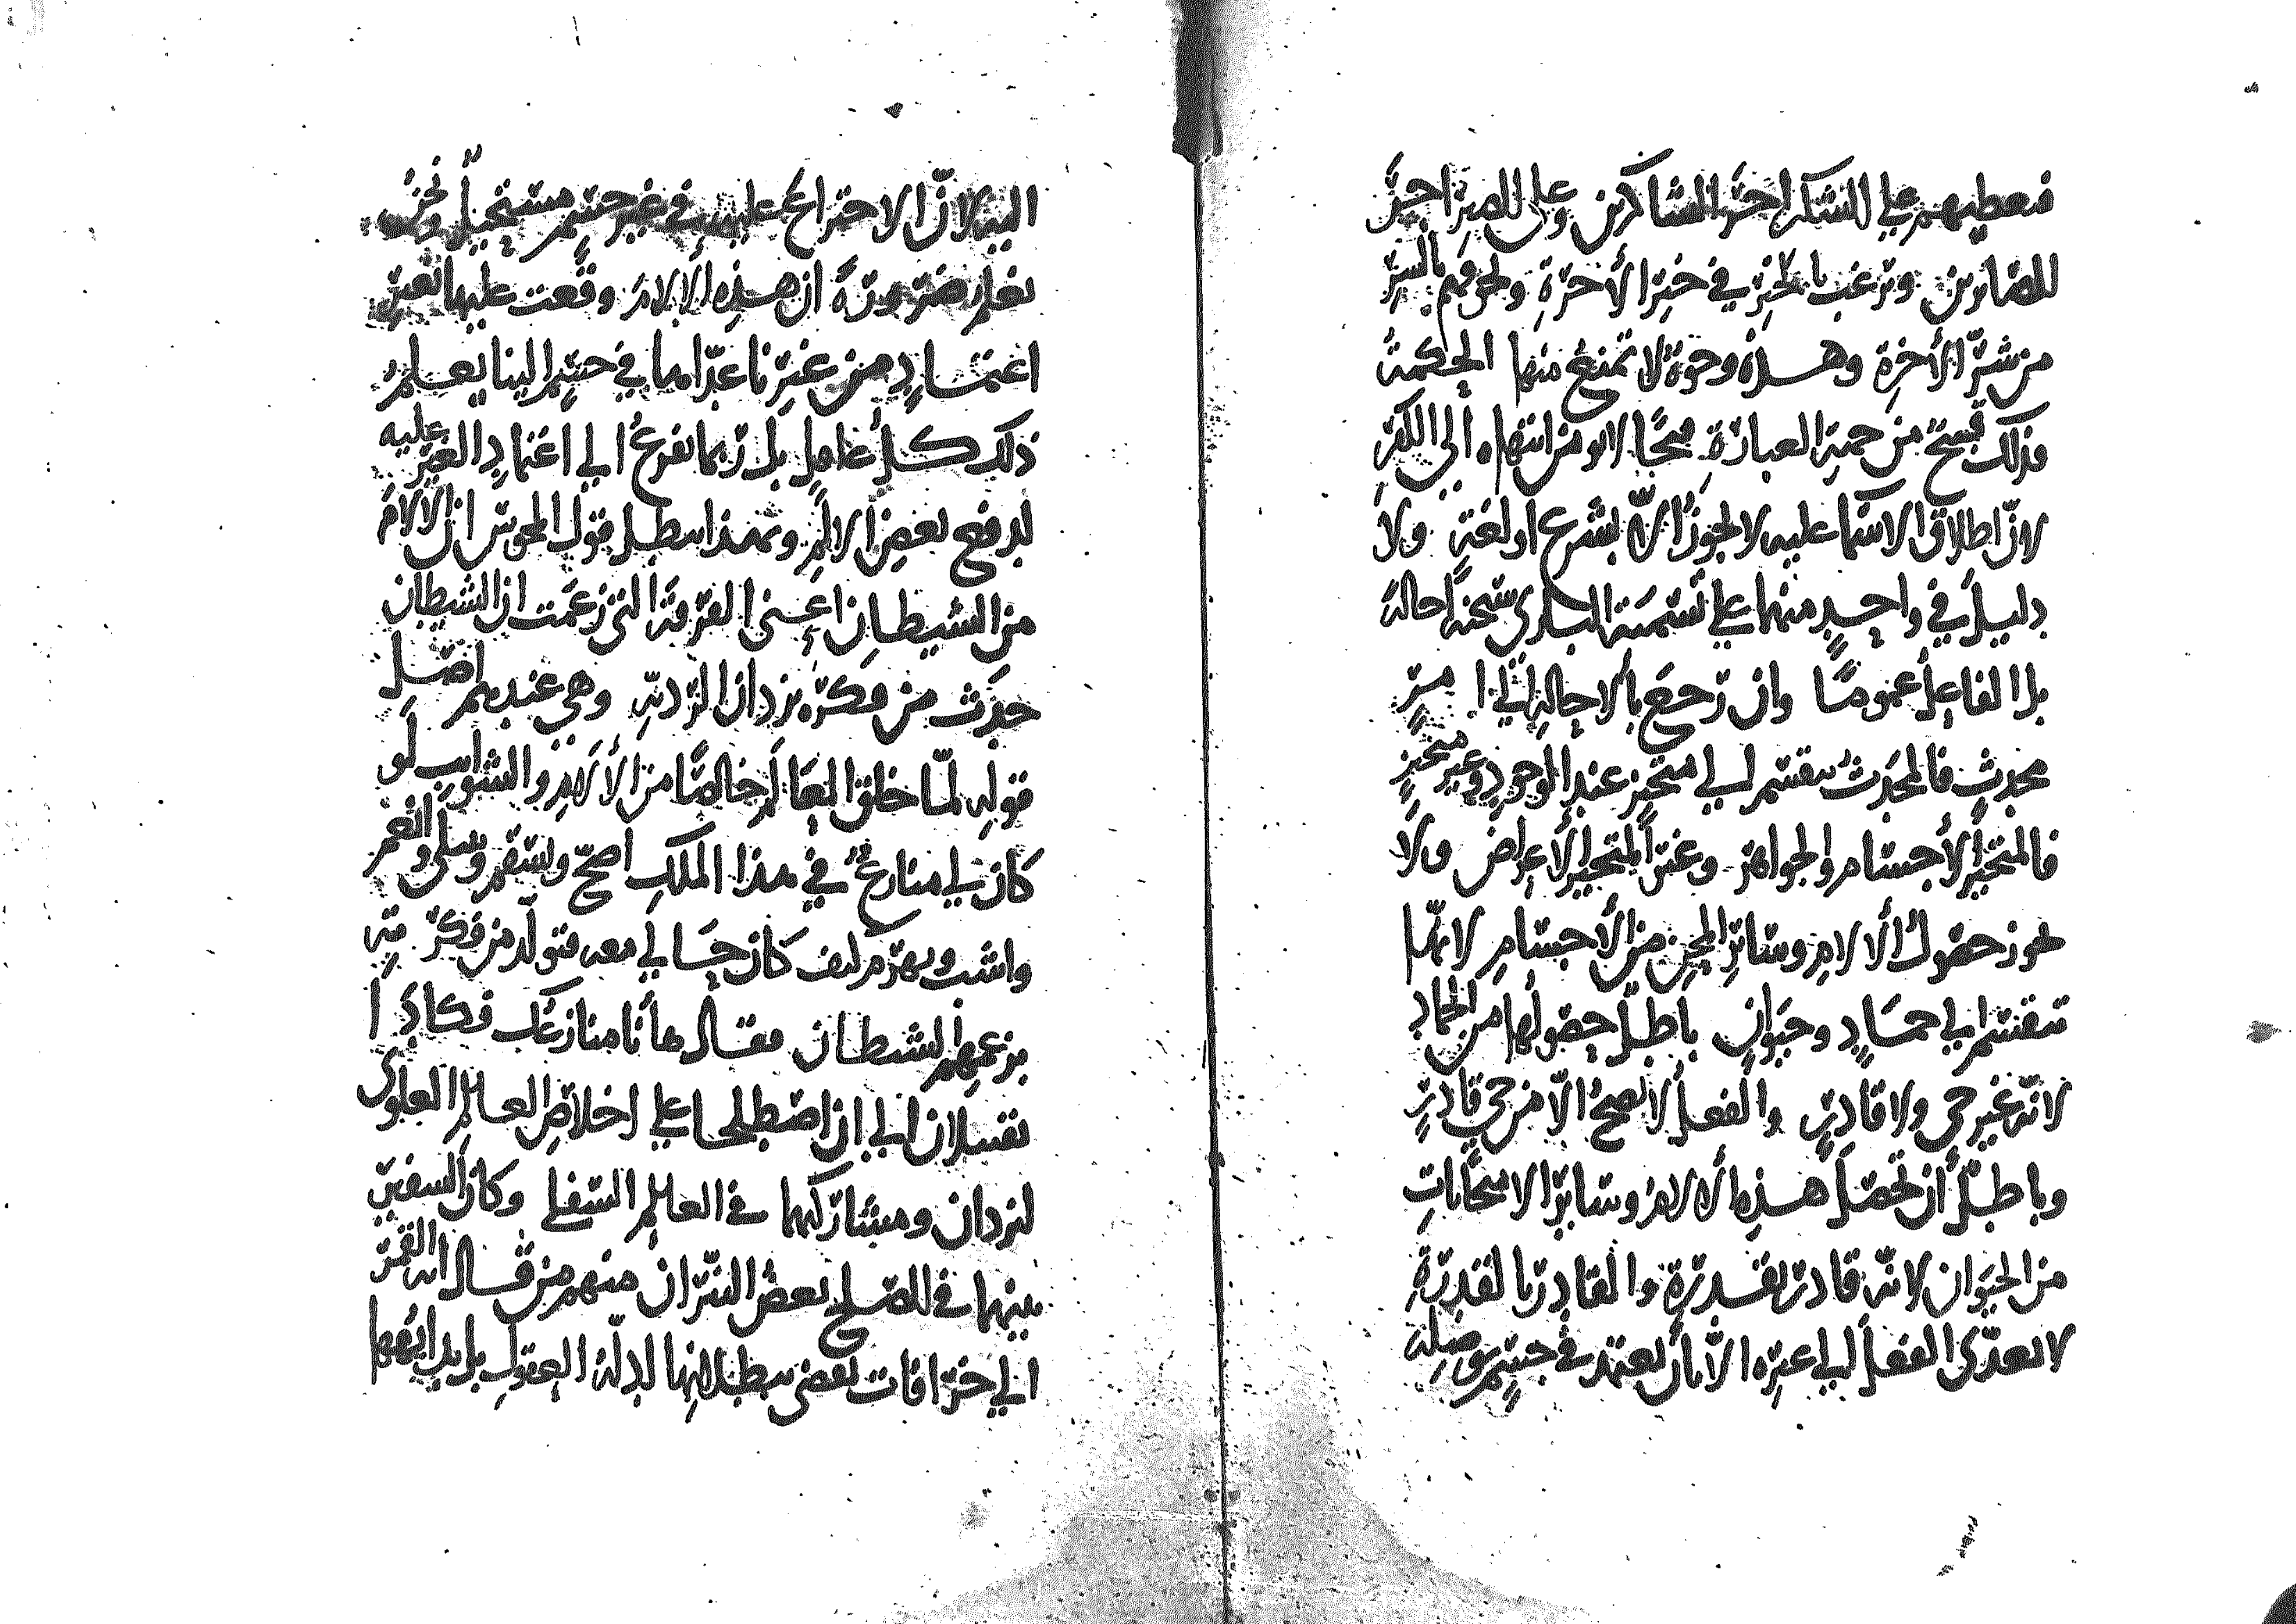 فيعطيهم على الشكر اجر الشاكرين وعلى الصبر اجر
الصابرين وترغب بالخير في خير الأخرة وتخوفهم بالشر
من شر الأخرة وهذه وجوه لا تمنع منها الحكمة
فذلك قبيح من جهة العبارة انتهاه الى الكفر
لان اطلاق الاسما عليه لا يجوز الا بشرع او لغة ولا
دليل في واحد منهما على تسمية الباري احالة
بل الفاعل عموما وان رجع بالاحالة الى امر
محدث فالمحدث ينقسم الى متحيز عند الوجود وغير متحيز
فالمتحيز الأجسام والجواهر وغير المتحيز الأعراض ولا
يجوز حصول الألام وسائر المحن من الأجسام لانها
تنقسم الى جماد وحيوان باطل حصولها من الجماد
لانه غير حي ولا قادر والفعل لا يصح الا من حي قادر
وباطل أن تحصل هذه الألام وسائر الامتحانات
من الحيوان لانه قادر بقدرة والقادر بالقدرة
لا يعدى الفعل الى غيره الا بأن يعتمد في جسم يوصله
اليه لان الاختراع عليه في غير جسم مستحيل ونحن
نعلم ضرورة ان هذه الالام وقعت عليها بغير
اعتماد من غيرنا عداها في جسم الينا يعلم
ذلك كل عاقل بل ربما نفزع الى اعتماد الغير عليه
لدفع بعض الالم وبهذا يبطل قول المجوس ان الالام
من الشيطان اعنى الفرقة التي زعمت ان الشيطان
حدث من فكرة يزدان الردية وهي عندهم اصل
قوله لما خلق العالم خالصا من الألام والشوايب لو
كان لي منازع في هذا الملك اصح ويسقم والنعم
واشب ويهرم كيف كان حالي معه فتولد من فكرته
بزعمهم الشيطان فقال ها أنا منازعك فكادا
يقتتلان الى ان اصطلحا على اخلاص العالم العلوي
ليزدان ومشاركتهما في العالم السفلي وكان السفير
بينهما في الصلح بعض النيران منهم من قال انه القمر
الى خرافات بعض يبطلها ادلة العقول بل بدايهها